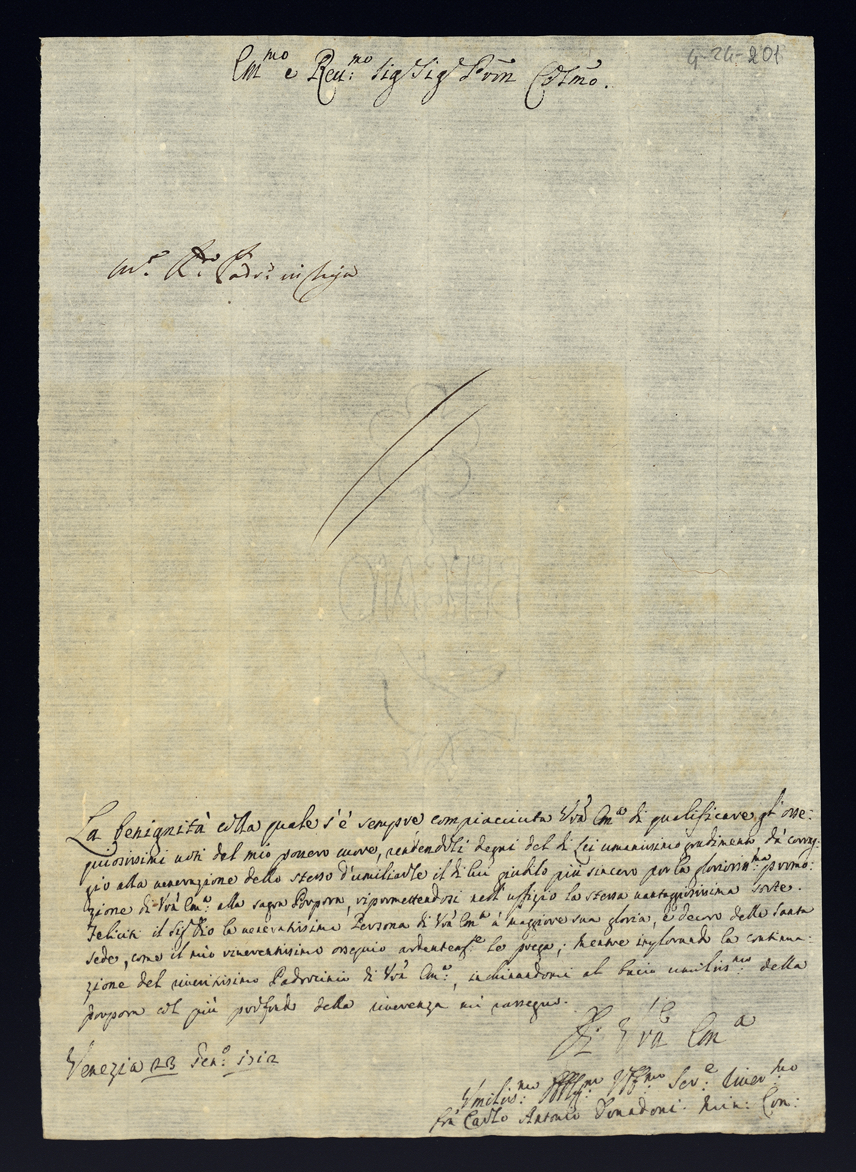 4-24-201
Em.mo e Reu:mo Sig.r Sig.r P.ron Col.mo.
Padr:
La benignità colla quale s'è sempre compiacciuta V.ra Em.a di qualificare gl'osse:
quiosissimi uoti del mio pouero cuore, rendendoli degni del di Lei umanissimo gradimento, dà corag:
gio alla uenerazione dello stesso d'umiliarle il di lui giubilo più sincero per la gloriosis.ma promo:
zione di V.ra Em.a alla sagra Porpora, ripromettendosi nell'uffizio la stessa uantaggiosissima sorte.
Feliciti il Sig.r Dio la ueneratissima Persona di V.ra Em.a à maggiore sua gloria, e decoro della Santa
Sede, come il mio riuerentissimo ossequio ardentem.te Lo prega; mentre implorando la continua:
zione del riueritissimo Padrocinio di V.ra Em.a, inchinandomi al bacio umilis:mo della
porpora col più profondo della riuerenza mi rassegno.
Di V.ra Em.a
Venezia 23 Gen.o 1712
Vmilis:mo Ser.e
fra Carlo Antonio Donadoni Min: Con: